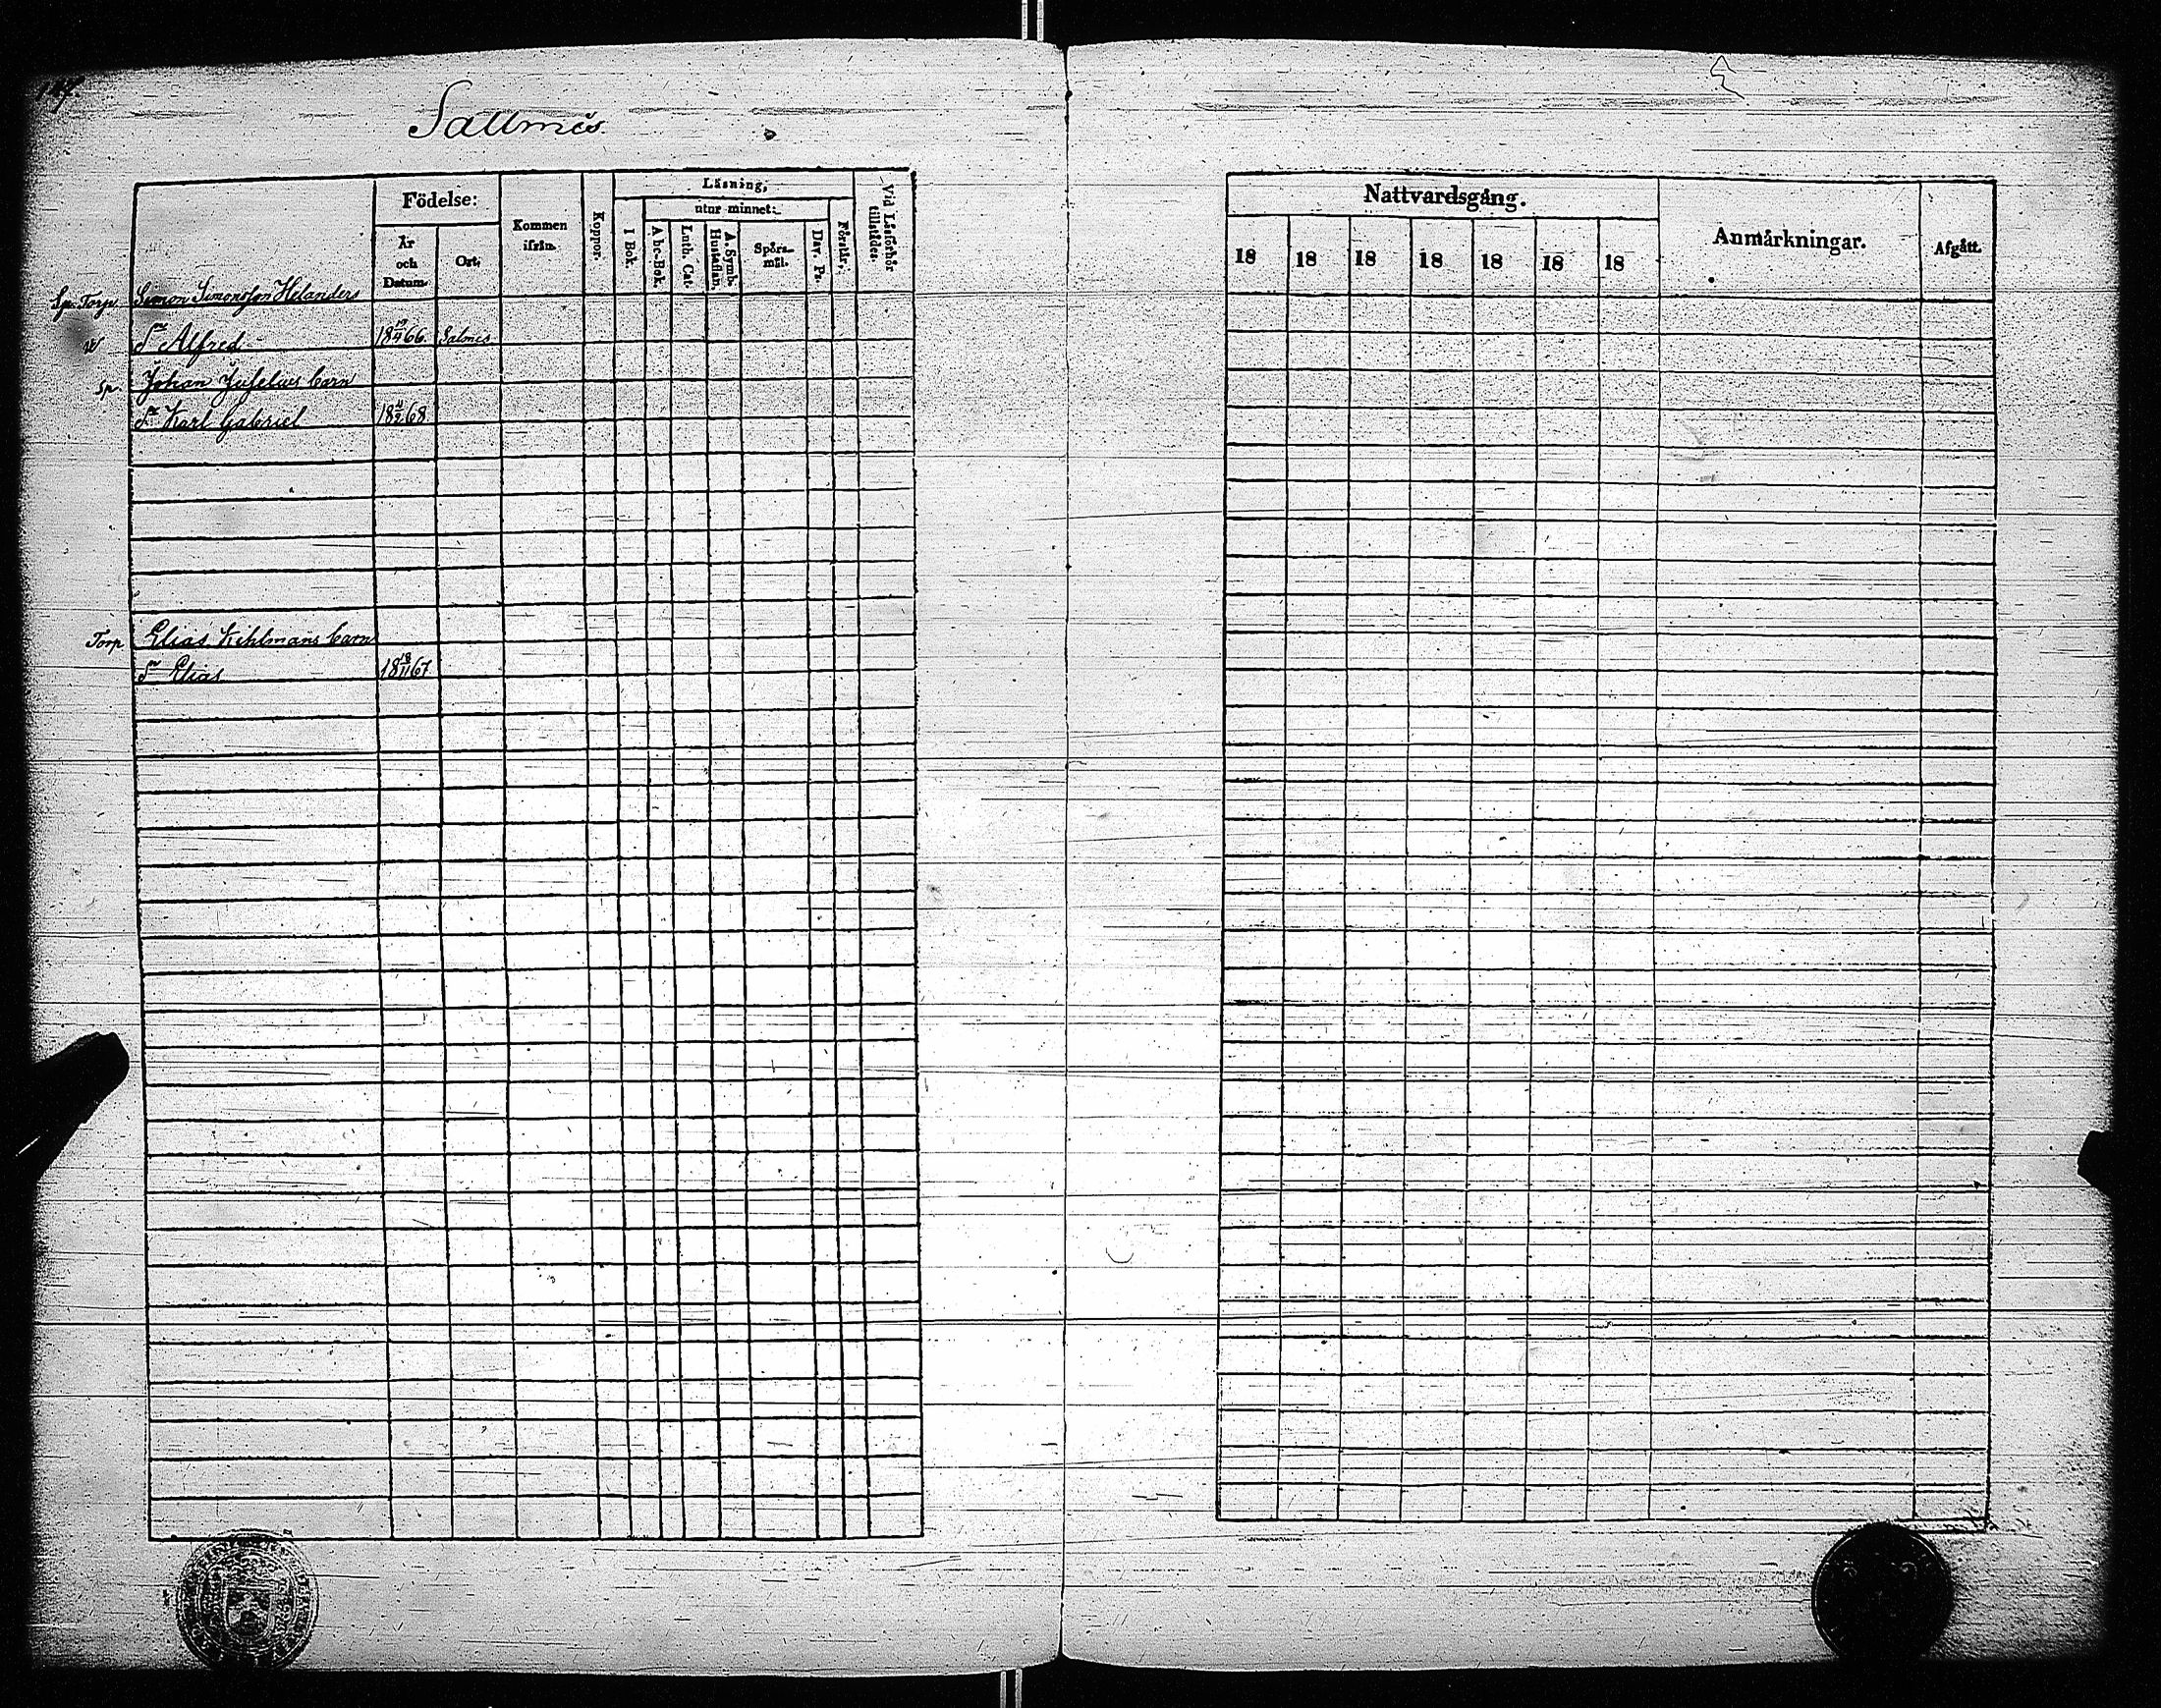 Sattmés.
Födelse:
År och Datum.
Ort.
Kommen ifrån.
Koppor.
Läsning,
I Bok.
utur minnet:
A bc-Bok.
Luth. Cat.
A. Symb. Hustaflan.
Spörsmål.
Dav. Ps.
Förstår.
Vid Läsförhör tillstädes.
Nattvardsgång.
18 18 18 18 18 18 18
Anmärkningar.
Afgått.
Sp. Torp. Simon Simonsson Helanders
Sn Alfred 18 66 Salmis
Sp. Johan Juselius barn
Sn Karl Gabriel 18 4/2 68
Torp Elias Kihlmans barn
Sn Elias 18 18/11 67